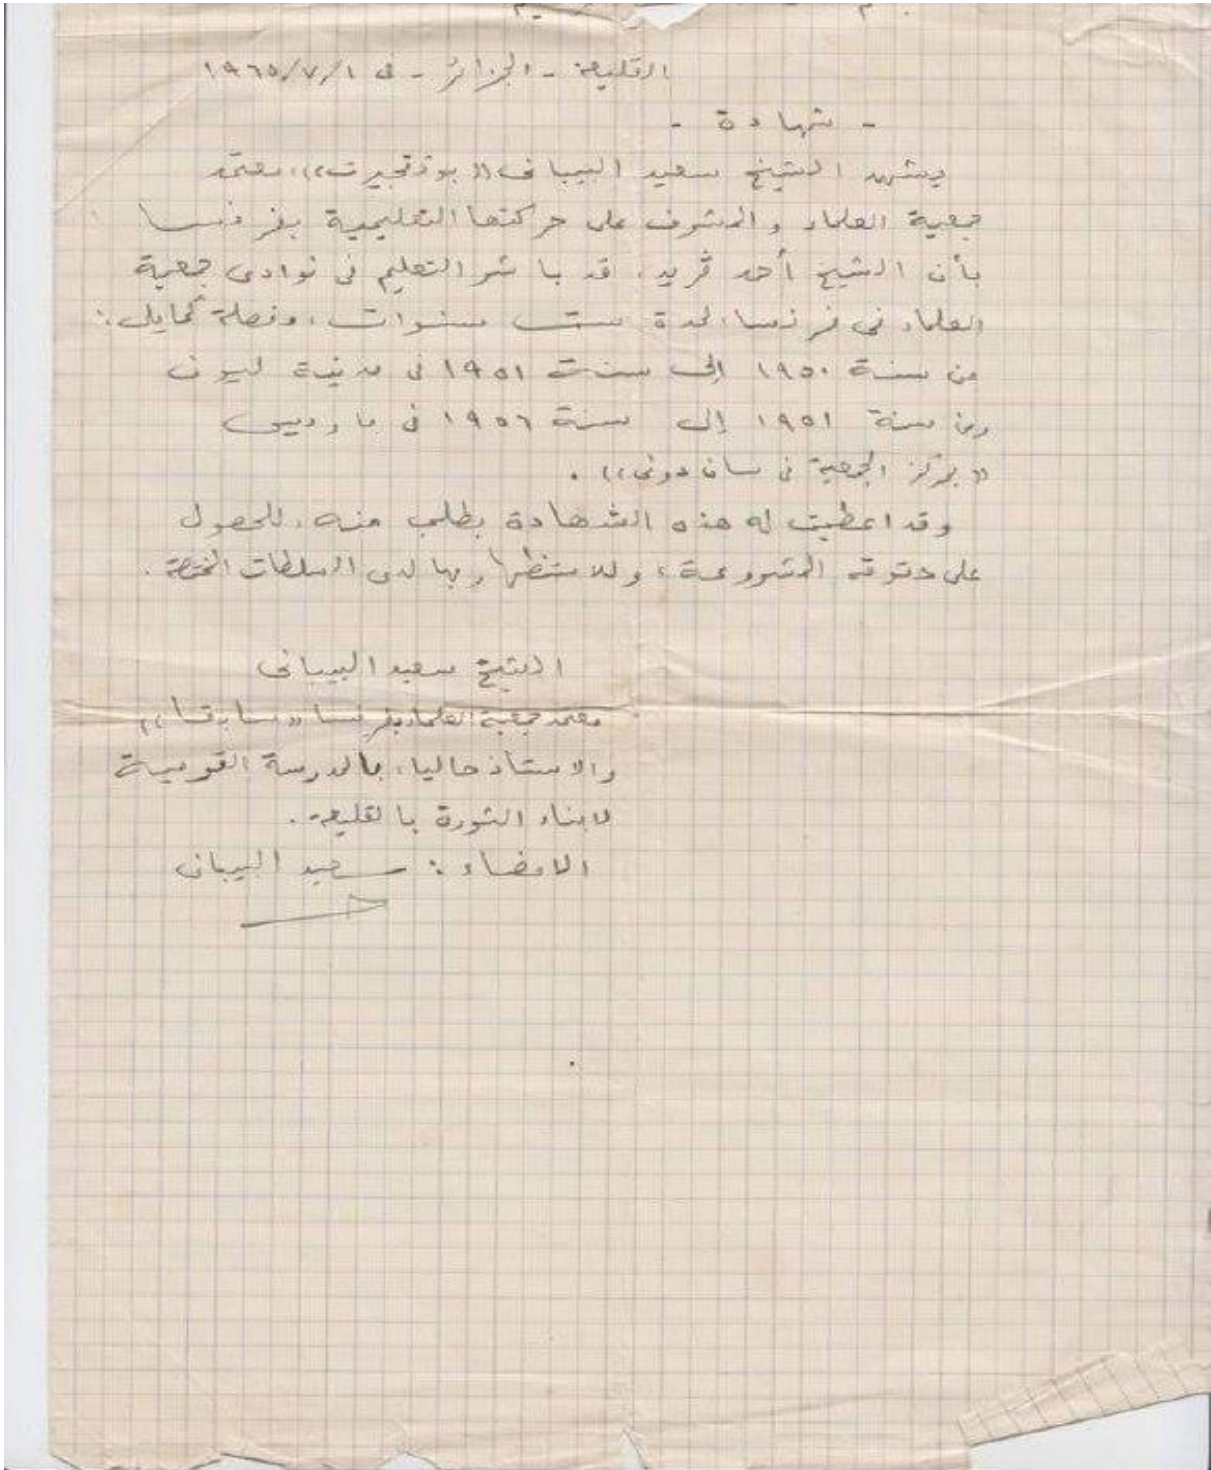 القليعة - الجزائر - في ١/٧/١٩٦٥
- شهادة -
يشهد الشيخ سعيد البيباني ((بوتقجيرت))، معتمد
جمعية العلماء والمشرف على حركتها التعليمية بفرنسا
بأن الشيخ أحمد ڤريد، قد باشر التعليم في نوادي جمعية
العلماء في فرنسا، لمدة ست سنوات، مفصلة كمايلي:
من سنة ١٩٥٠ إلى سنة ١٩٥١ في مدينة ليون
ومن سنة ١٩٥١ إلى سنة ١٩٥٦ في باريس
((بمركز الجمعية في سان دوني)).
وقد اعطيت له هذه الشهادة بطلب منه، للحصول
على حقوقه المشروعة، وللاستظهار بها لدى السلطات المختصة.
الشيخ سعيد البيباني
معتمد جمعية العلماء بفرنسا ((سابقا))
والاستاذ حاليا، بالمدرسة القومية
لابناء الثورة بالقليعة.
الامضاء: سعيد البيباني